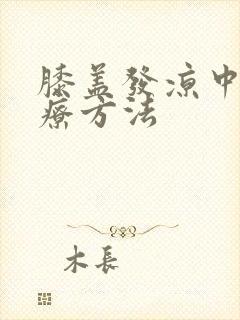 膝盖發凉中
療方法
木長